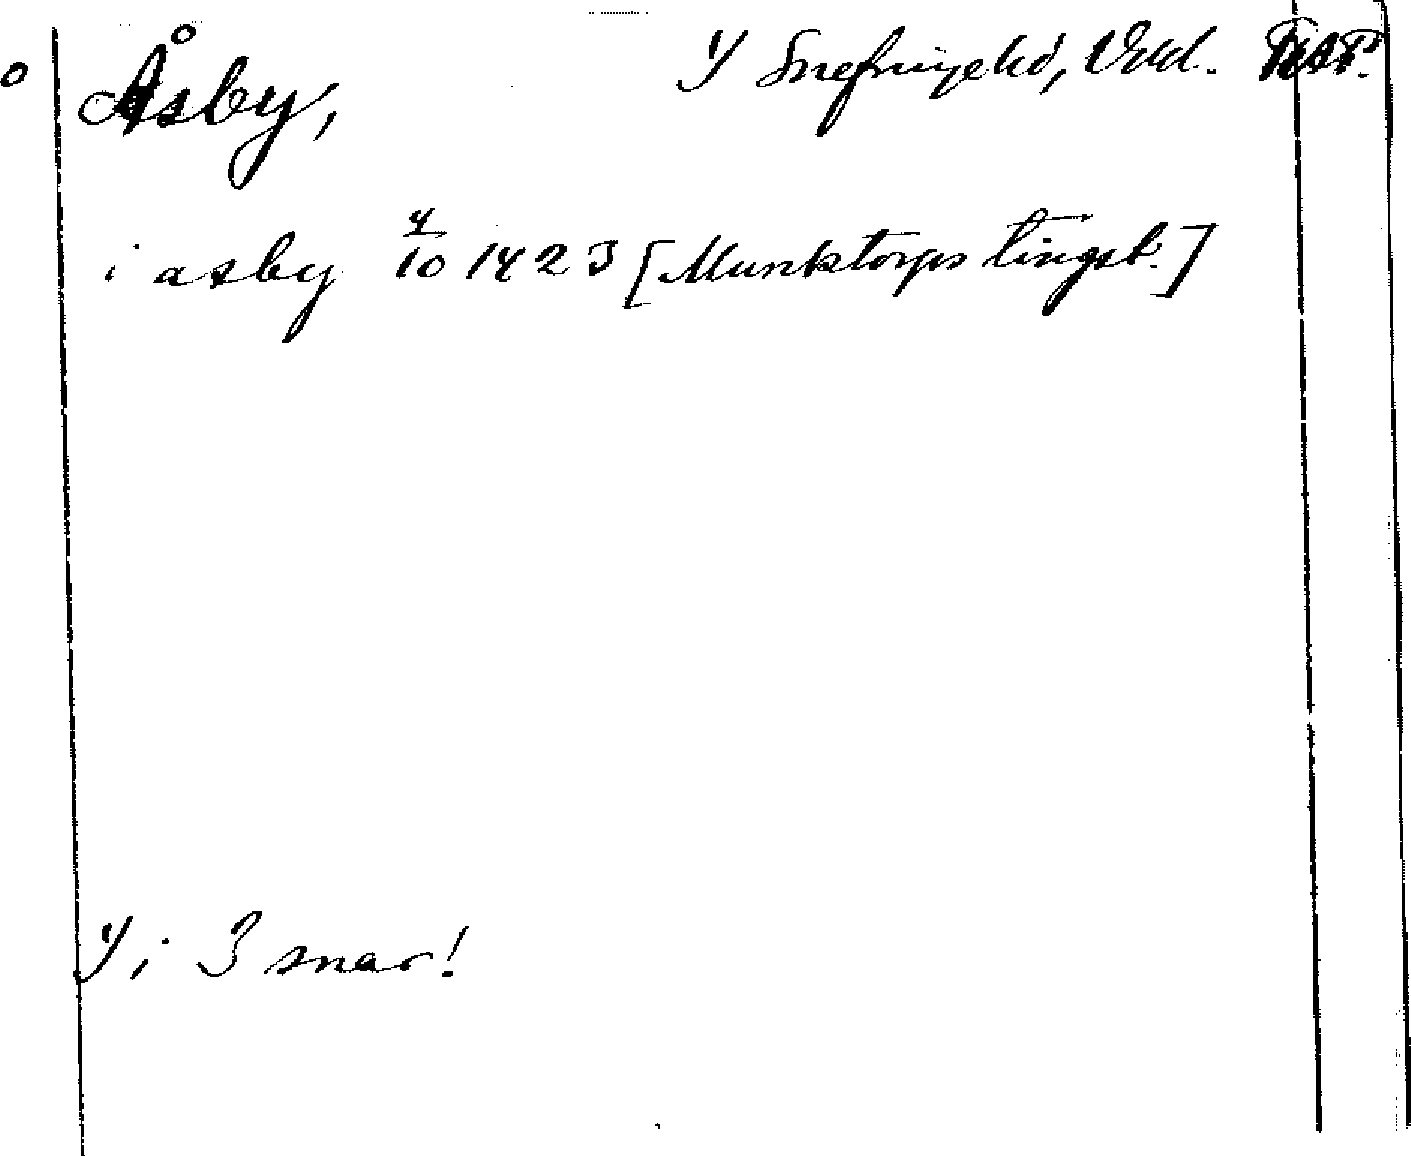 Åsby, Y Snefringe hd, Vstml.
i asby 4/10 1423 [Munktorps tingst.]
Y i 3 snar!